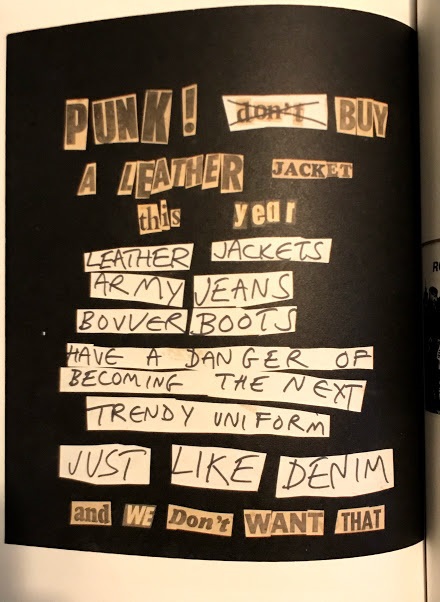 PUNK! don't BUY
A LEATHER JACKET
this year
LEATHER JACKETS
ARMY JEANS
BOVVER BOOTS
HAVE A DANGER OF
BECOMING THE NEXT
TRENDY UNIFORM
JUST LIKE DENIM
and WE Don't WANT THAT